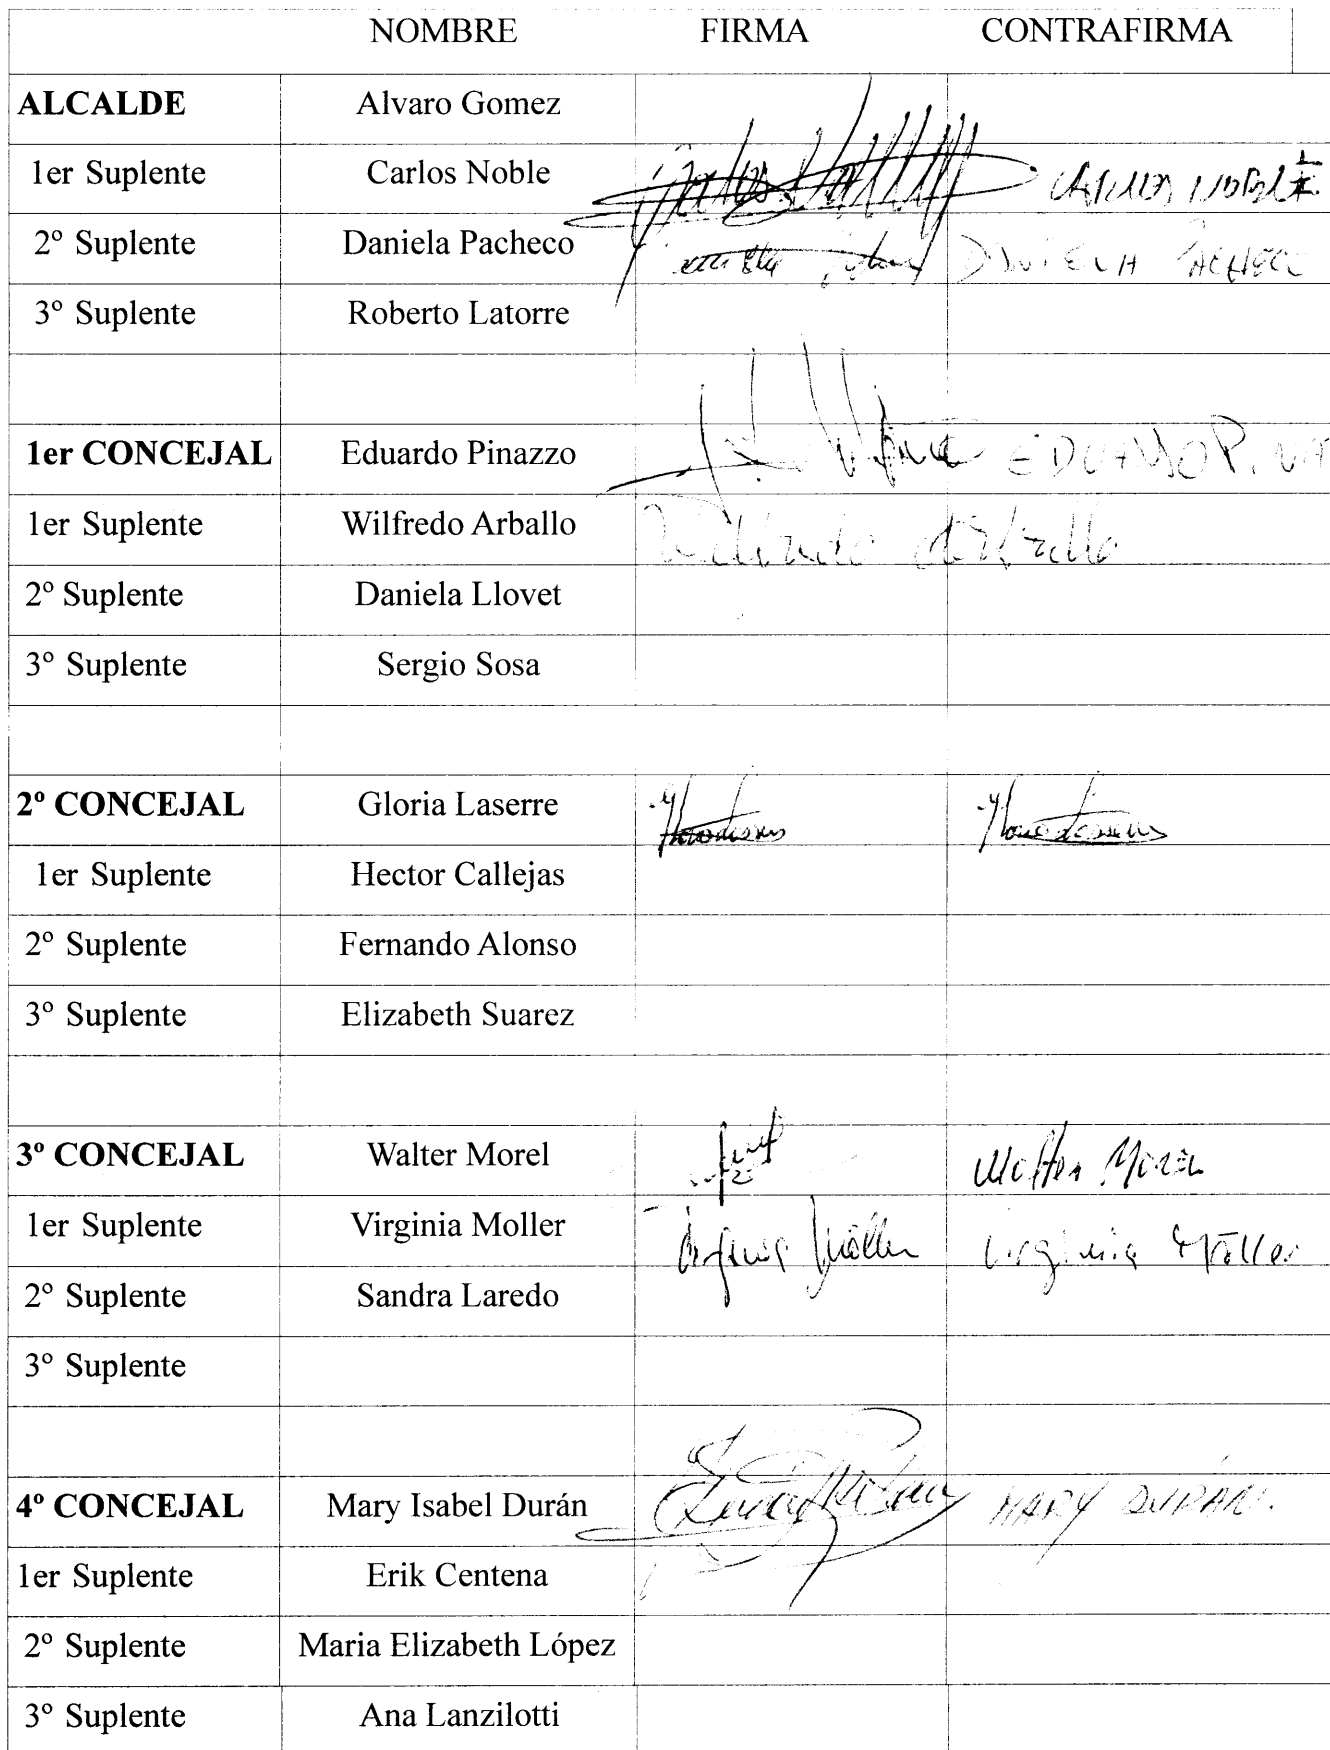 NOMBRE FIRMA CONTRAFIRMA
ALCALDE Alvaro Gomez
1er Suplente Carlos Noble CARLOS NOBLE
2º Suplente Daniela Pacheco DANIELA PACHECO
3º Suplente Roberto Latorre
1er CONCEJAL Eduardo Pinazzo EDUARDO
1er Suplente Wilfredo Arballo Wilfredo Arballo
2º Suplente Daniela Llovet
3º Suplente Sergio Sosa
2º CONCEJAL Gloria Laserre
1er Suplente Hector Callejas
2º Suplente Fernando Alonso
3º Suplente Elizabeth Suarez
3º CONCEJAL Walter Morel Walter Morel
1er Suplente Virginia Moller Virginia Möller Virginia Möller
2º Suplente Sandra Laredo
3º Suplente
4º CONCEJAL Mary Isabel Durán MARY DURAN.
1er Suplente Erik Centena
2º Suplente Maria Elizabeth López
3º Suplente Ana Lanzilotti